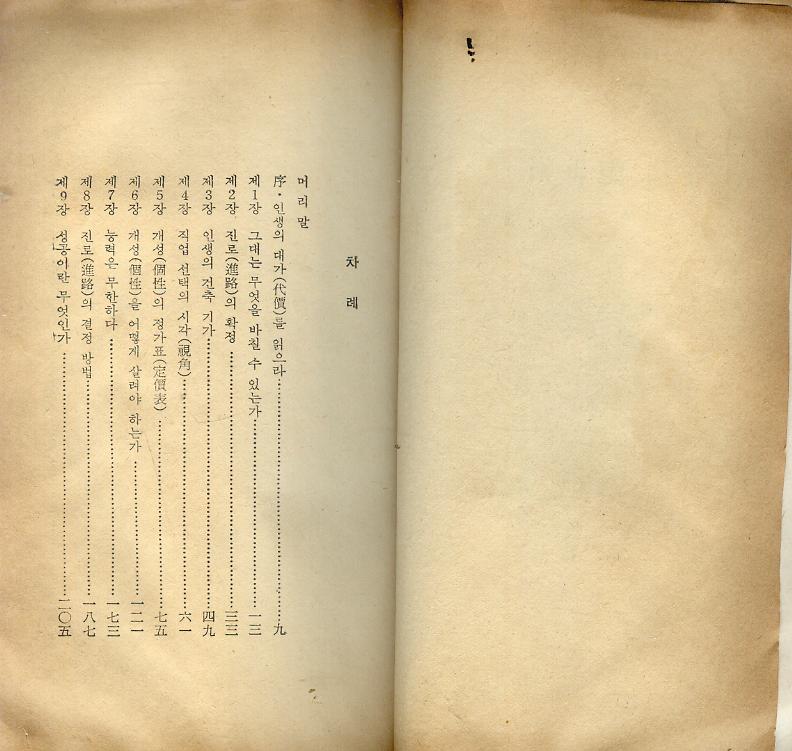 차례
머리말
序·인생의 대가(代價)를 읽으라……九
제1장 그대는 무엇을 바칠 수 있는가……一三
제2장 진로(進路)의 확정……三三
제3장 인생의 건축 기가……四九
제4장 직업 선택의 시각(視角)……六一
제5장 개성(個性)의 정가표(定價表)……七五
제6장 개성(個性)을 어떻게 살려야 하는가……一二一
제7장 능력은 무한하다……一七三
제8장 진로(進路)의 결정 방법……一八七
제9장 성공이란 무엇인가……二〇五